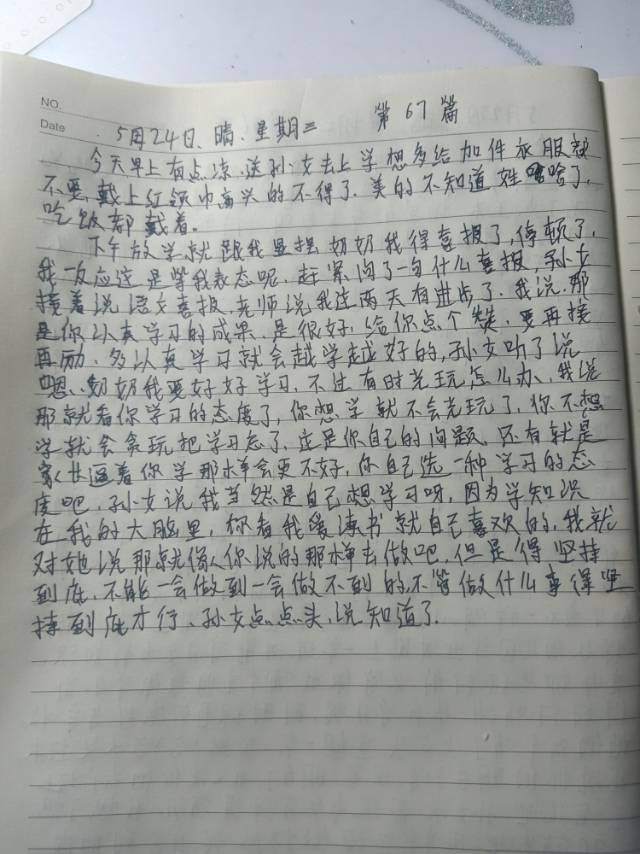 NO.
Date
5月24日、晴、星期三 第67篇
今天早上有点凉,送孙女去上学想多给加件衣服都
不要,戴上红领巾高兴的不得了,美的不知道姓啥了,
吃饭都戴着。
下午放学就跟我显摆奶奶我得喜报了,停顿了,
我一反应这是等我表态呢,赶紧问了一句什么喜报,孙女
接着说语文喜报,老师说我这两天有进步了,我说,那
是你认真学习的成果,是很好,给你点个赞,要再接
再励、多认真学习就会越学越好的,孙女听了说
嗯、奶奶我要好好学习,不过有时光玩怎么办,我说
那就看你学习的态度了,你想学就不会光玩了,你不想
学就会贪玩把学习忘了,这是你自己的问题。还有就是
家长逼着你学那样会更不好,你自己选一种学习的态
度吧,孙女说我当然是自己想学习呀,因为学知识
在我的大脑里,你看我爱读书就自己喜欢的,我就
对她说那就像你说的那样去做吧,但是得坚持
到底,不能一会做到一会做不到的,不管做什么事得坚
持到底才行、孙女点点头,说知道了.